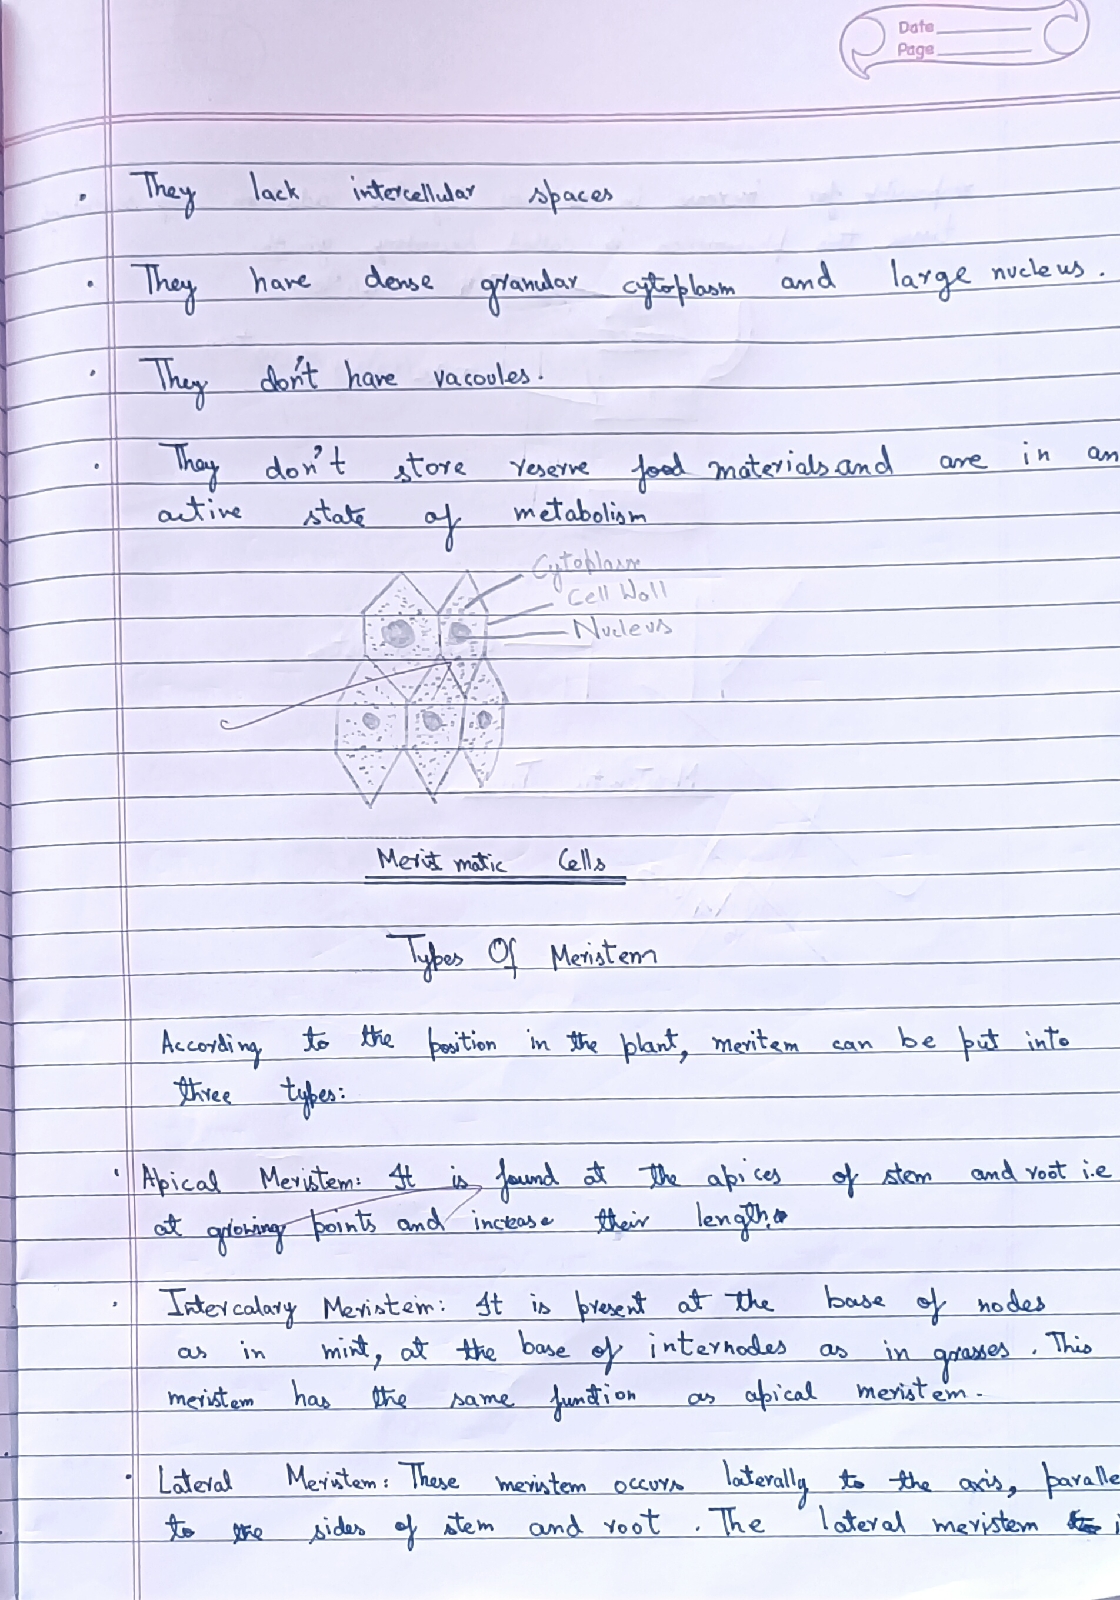 Date
Page
They lack intercellular spaces
They have dense granular cytoplasm and large nucleus.
They don't have vacoules.
They don't store reserve food materials and are in an
active state of metabolism
Cytoplasm
Cell Wall
Nucleus
Meristmatic Cells
Types Of Meristem
According to the position in the plant, meritem can be put into
three types:
Apical Meristem: It is found at the apices of stem and root i.e
at growing points and increase their length.
Intercalary Meristem: It is present at the base of nodes
as in mint, at the base of internodes as in grasses. This
meristem has the same function as apical meristem.
Lateral Meristem: These meristem occurs laterally to the axis, paralle
to the sides of stem and root. The lateral meristem